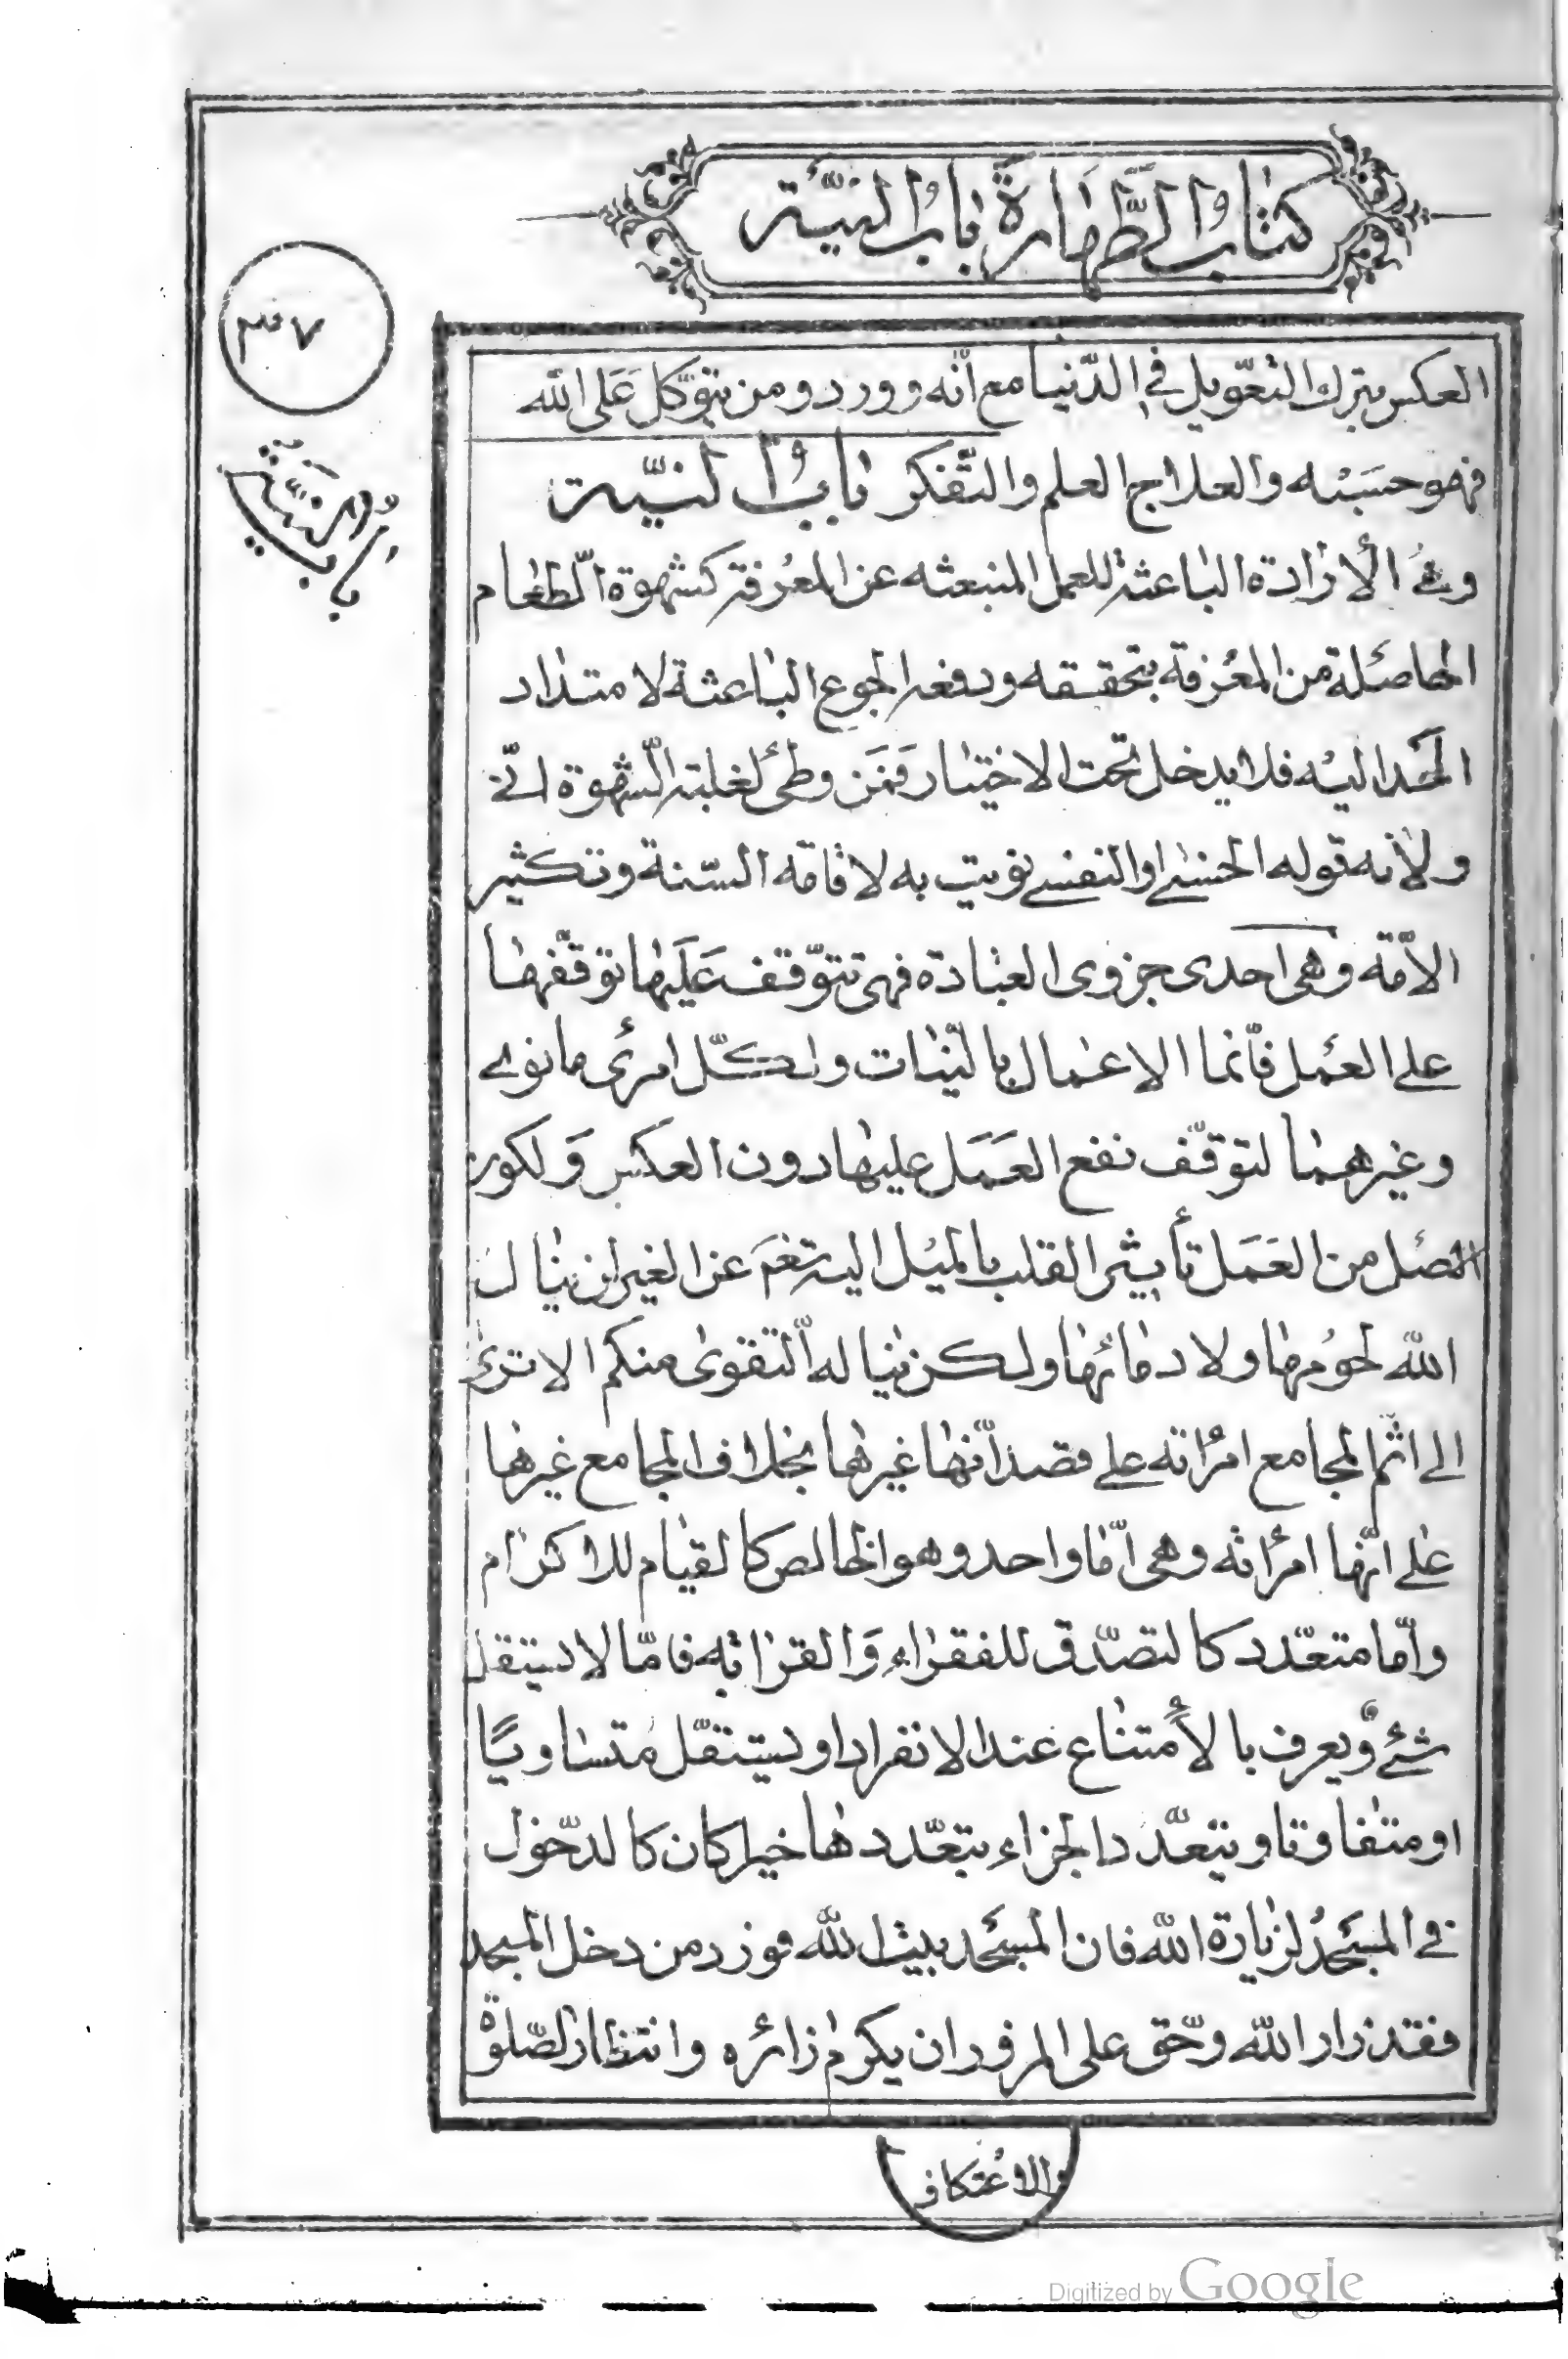 كتاب الطَّهارة باب النيّة
٣٧
باب النيّة
العكس بترك التعّويل في الدّنيا مع انّه وورد ومن يتوّكل عَلى الله
فهو حسَبْه والعلاج العلم والتّفكر باب النيّة
وهي الأرادة الباعثة للعمل المنبعثه عن المعُرفة كشهوة الّطعام
الحاصَلة من المعُرفة بتحققه ودفعه الجوع الباعثة لامتداد
الَيد اليْه فلا يدخل تحت الاختيار فمَن وطئ لغلبة الّشهوة انّے
ولأنه قوله الحنسے او النفسے نويت به لاقامة السّنة وتكثير
الاّمّة وهى احدى جزوى العبادة فهى تتوّقف عَليَها توقّفها
على العمَل فاّنما الاعمال بالنّيات ولكّل امرئ ما نوى
وغيرهما لتوقّف نفع العَمَل عليها دون العكس وَلكون
الاصل من العَمَل تأثير القلب بالميْل اليه تعَم عن الغير لن ينال
الله لحوُمها ولا دمائها ولكن يناله التقوى منكم الا ترى
الى اثم المجامع امرُاته على قصد اّنها غيرها بخلاف المجامع غيرها
على انّها امرأته وهى اّما واحد وهو الخالص كالقيام للاكرام
واّما متعّدد كالتصّدق للفقراء وَالقرابه فامّا لا يستقل
شئ وّيعرف بالأمتناع عند الانفراد او يستقّل مُتساويًا
او متفاوتا ويتعّدد الجزاء بتعّددها خيرا كان كالدّخول
في المسَجدُ لزيارة الله فان المسَجد بيت الله فورد من دخل المسجد
فقد زار الله وحّق على المزور ان يكرم زائره وانتظار الصّلوة
والاعُتكاف
Digitized by Google